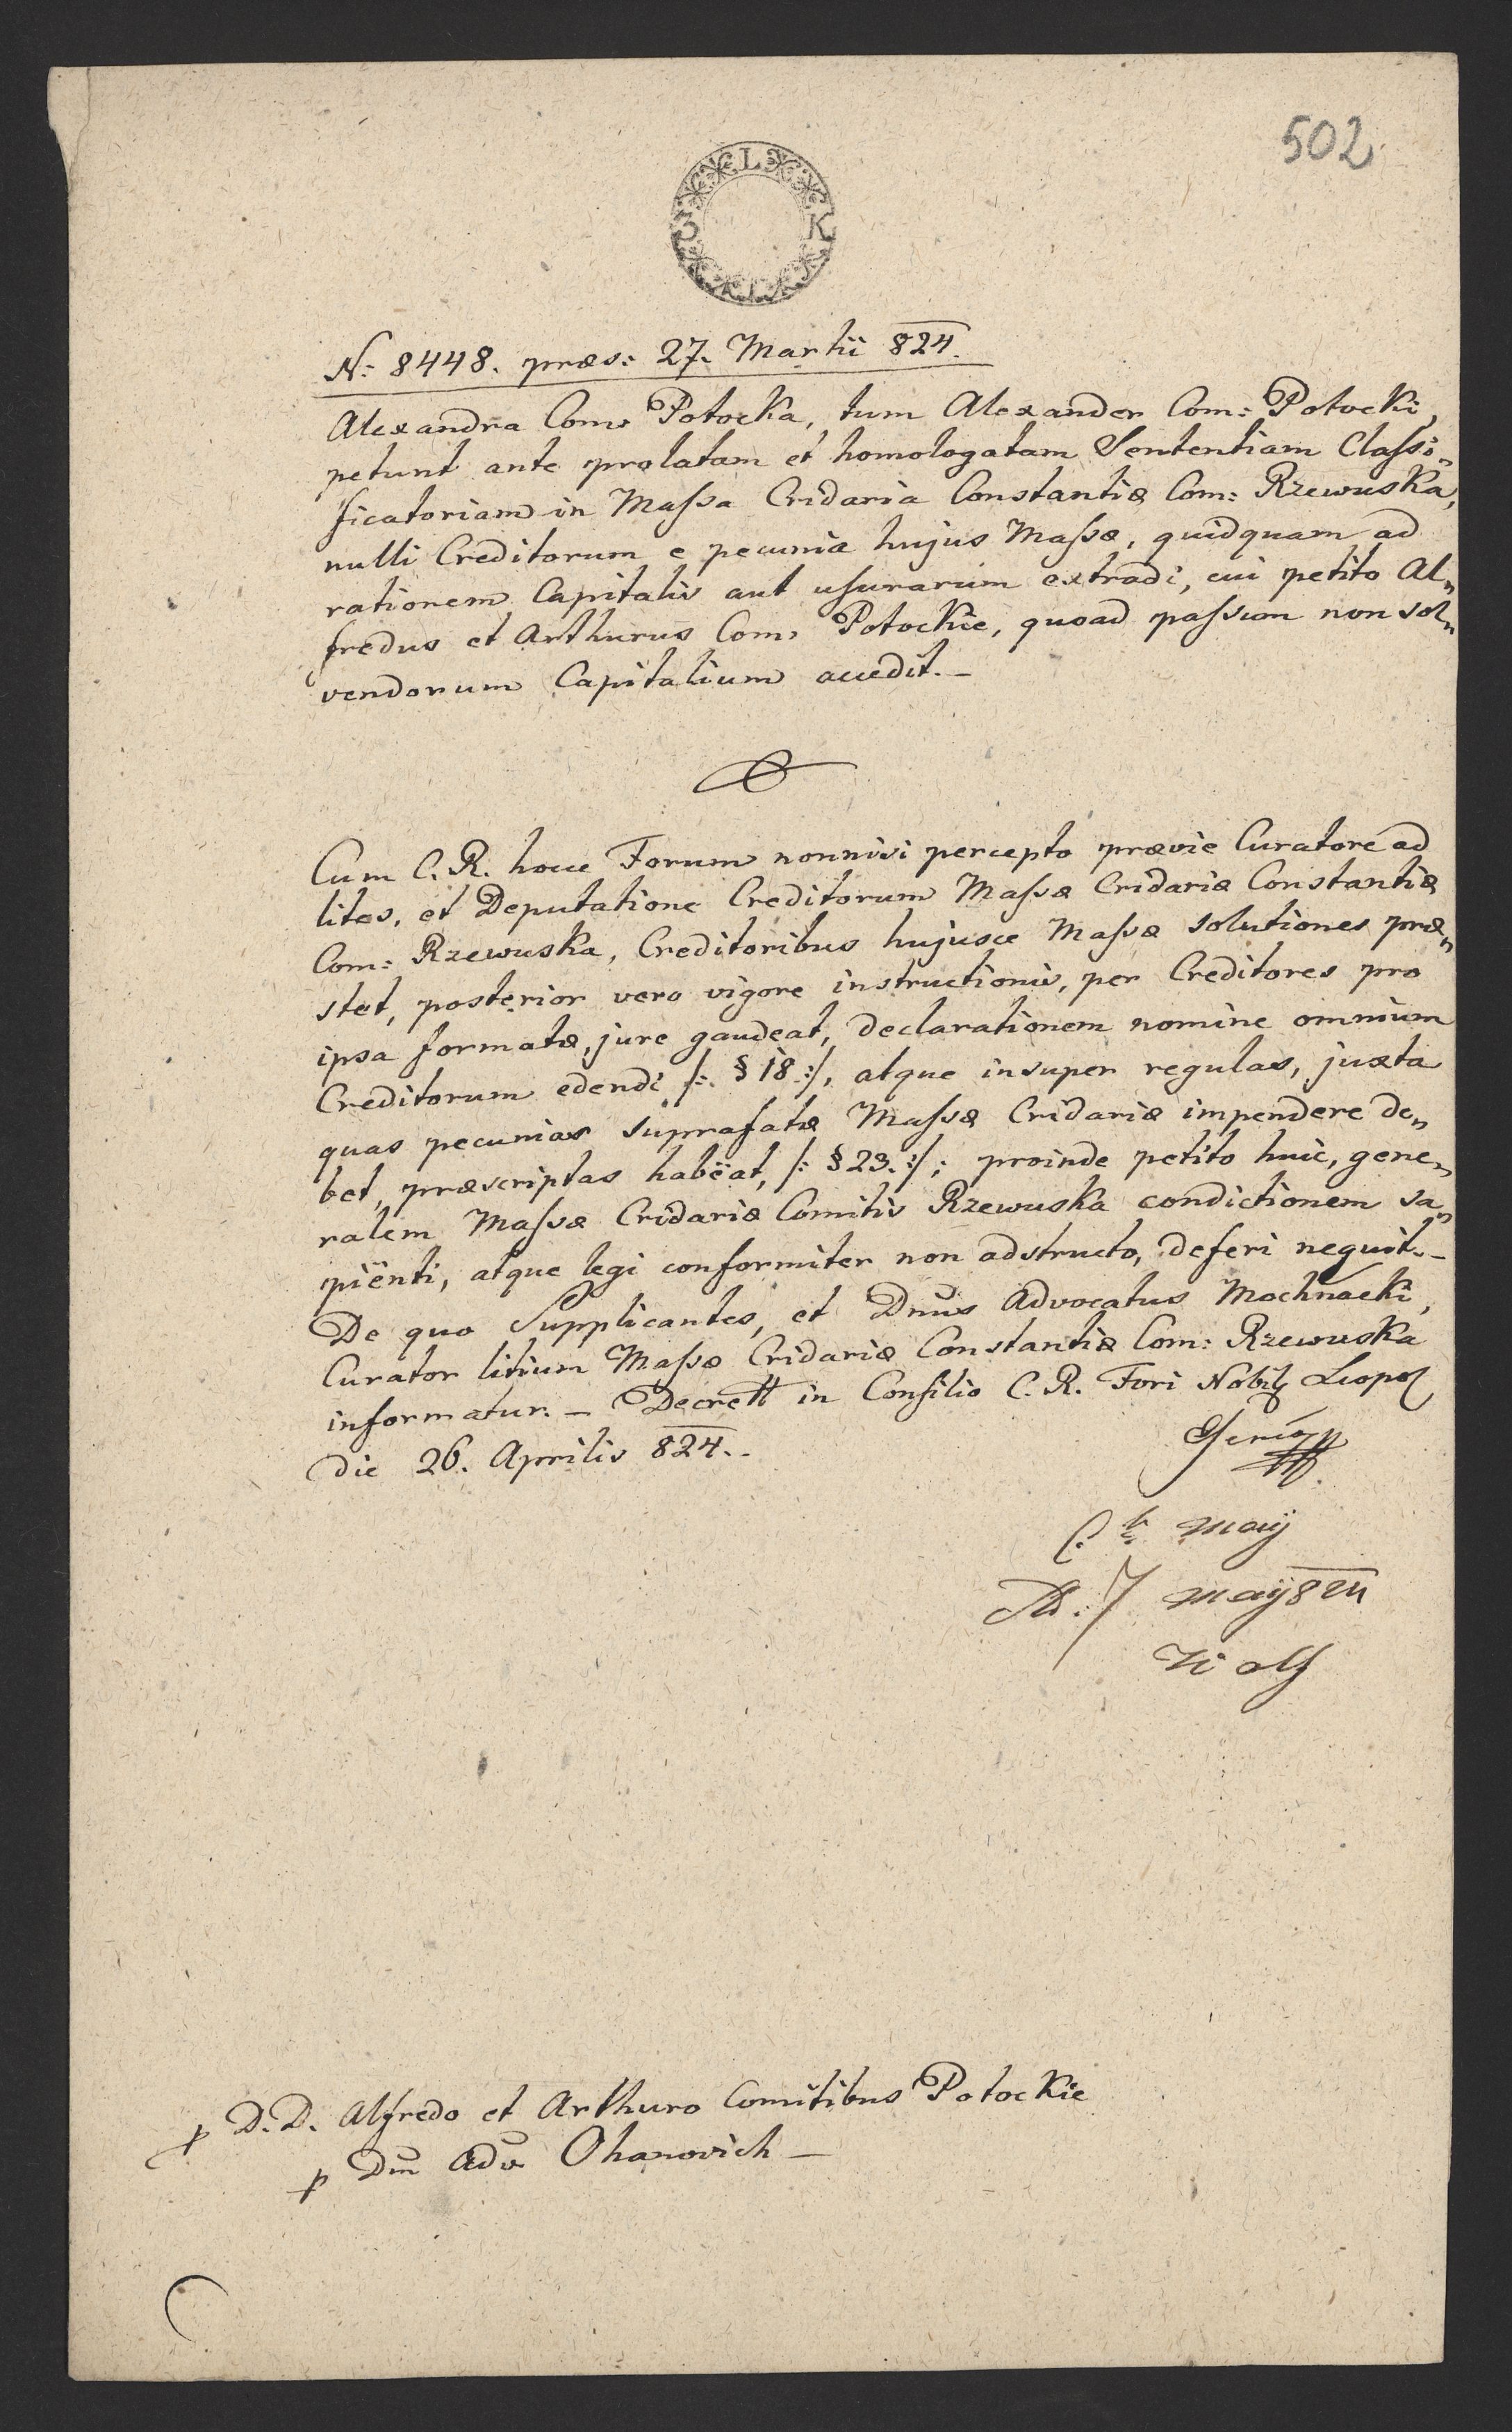 502
L
3 K
N: 8448. præs: 27. Martii 824.
Alexandra Com: Potocka, tum Alexander Com: Potocki,
petunt ante prolatam et homologatam Sententiam Classi„
ficatoriam in Massa Cridaria Constantiæ Com: Rzewuska,
nulli Creditorum e pecunia hujus Massæ, quidquam ad
rationem Capitalis aut usurarum extradi, cui petito Al„
fredus et Arthurus Com: Potockie, quoad passum non sol„
vendorum Capitalium accedit.–
Cum C. R. hocce Forum nonnisi percepto prævie Curatore ad
lites, et Deputatione Creditorum Massæ Cridariæ Constantiæ
Com: Rzewuska, Creditoribus hujusce Massæ solutiones præ„
stet, posterior vero vigore instructionis, per Creditores pro
ipsa formatæ, jure gaudeat, declarationem nomine omnium
Creditorum edendi /: § 18 :/, atque insuper regulas, juxta
quas pecunias suprafatæ Massæ Cridariæ impendere de„
bet, præscriptas habëat, /: § 23. :/; proinde petito huic, gene„
ralem Massæ Cridariæ Comitis Rzewuska condictionem sa„
piënti, atque legi conformiter non adstructo, deferi nequit.–
De quo Supplicantes, et Dnus Advocatus Mochnacki,
Curator litium Massæ Cridariæ Constantiæ Com: Rzewuska
informatur. – Decrett in Consilio C. R. Fori Nobil Leopol
die 26. Aprilis 824.–
may
7 maij 824
D. D. Alfredo et Arthuro Comitibus Potockie
p Dm Adv Ohanovich –